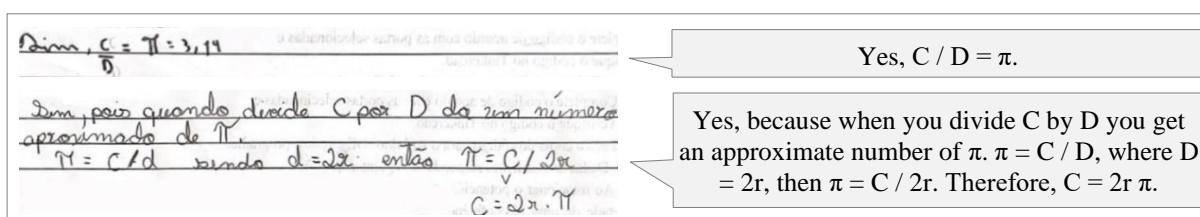 Sim, C/D = π = 3,14
Yes, C / D = π.
Sim, pois quando divide C por D da um número
aproximado de π.
π = C/d sendo d=2r então π = C/2r
C = 2r.π
Yes, because when you divide C by D you get
an approximate number of π. π = C / D, where D
= 2r, then π = C / 2r. Therefore, C = 2r π.